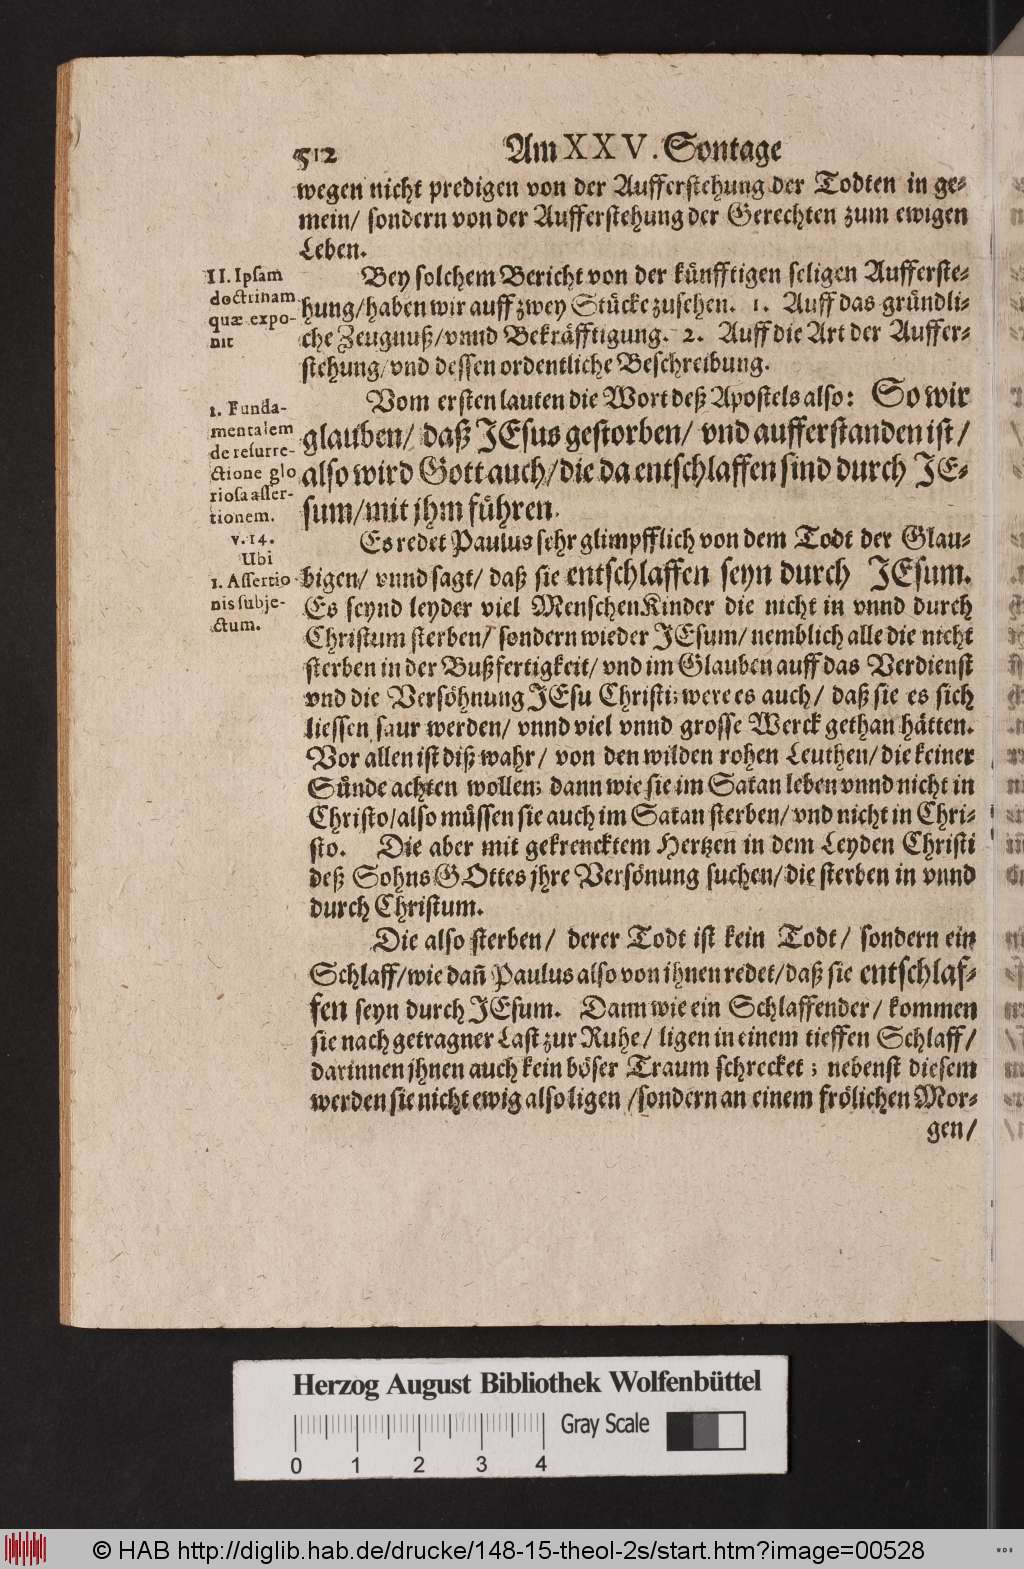 512 Am XXV. Sontage
wegen nicht predigen von der Aufferstehung der Todten in ge-
mein/ sondern von der Aufferstehung der Gerechten zum ewigen
Leben.
II. Ipsam
doctrinam
quæ expo-
nit
Bey solchem Bericht von der künfftigen seligen Aufferste-
hung/ haben wir auff zwey Stücke zusehen. 1. Auff das gründli-
che Zeugnuß/ vnnd Bekräfftigung. 2. Auff die Art der Auffer-
stehung/ vnd dessen ordentliche Beschreibung.
1. Funda-
mentalem
de resurre-
ctione glo
riosa asser-
tionem.
v. 14.
Ubi
1. Assertio
nis subje-
ctum.
Vom ersten lauten die Wort deß Apostels also: So wir
glauben/ daß JEsus gestorben/ vnd aufferstanden ist/
also wird Gott auch/ die da entschlaffen sind durch JE-
sum/ mit jhm führen.
Es redet Paulus sehr glimpfflich von dem Todt der Glau-
bigen/ vnnd sagt/ daß sie entschlaffen seyn durch JEsum.
Es seynd leyder viel MenschenKinder die nicht in vnnd durch
Christum sterben/ sondern wieder JEsum/ nemblich alle die nicht
sterben in der Bußfertigkeit/ vnd im Glauben auff das Verdienst
vnd die Versöhnung JEsu Christi; were es auch/ daß sie es sich
liessen saur werden/ vnnd viel vnnd grosse Werck gethan hätten.
Vor allen ist diß wahr/ von den wilden rohen Leuthen/ die keiner
Sünde achten wollen; dann wie sie im Satan leben vnnd nicht in
Christo/ also müssen sie auch im Satan sterben/ vnd nicht in Chri-
sto. Die aber mit gekrencktem Hertzen in dem Leyden Christi
deß Sohns GOttes jhre Versönung suchen/ die sterben in vnnd
durch Christum.
Die also sterben/ derer Todt ist kein Todt/ sondern ein
Schlaff/ wie dañ Paulus also von ihnen redet/ daß sie entschlaf-
fen seyn durch JEsum. Dann wie ein Schlaffender/ kommen
sie nach getragner Last zur Ruhe/ ligen in einem tieffen Schlaff/
darinnen jhnen auch kein böser Traum schrecket; nebenst diesem
werden sie nicht ewig also ligen/ sondern an einem frölichen Mor-
gen/
Herzog August Bibliothek Wolfenbüttel
Gray Scale
0 1 2 3 4
© HAB http://diglib.hab.de/drucke/148-15-theol-2s/start.htm?image=00528